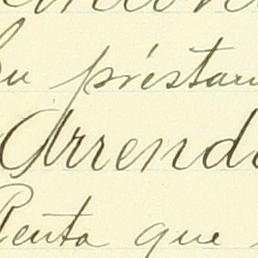 Su préstam
Arrend
Renta que